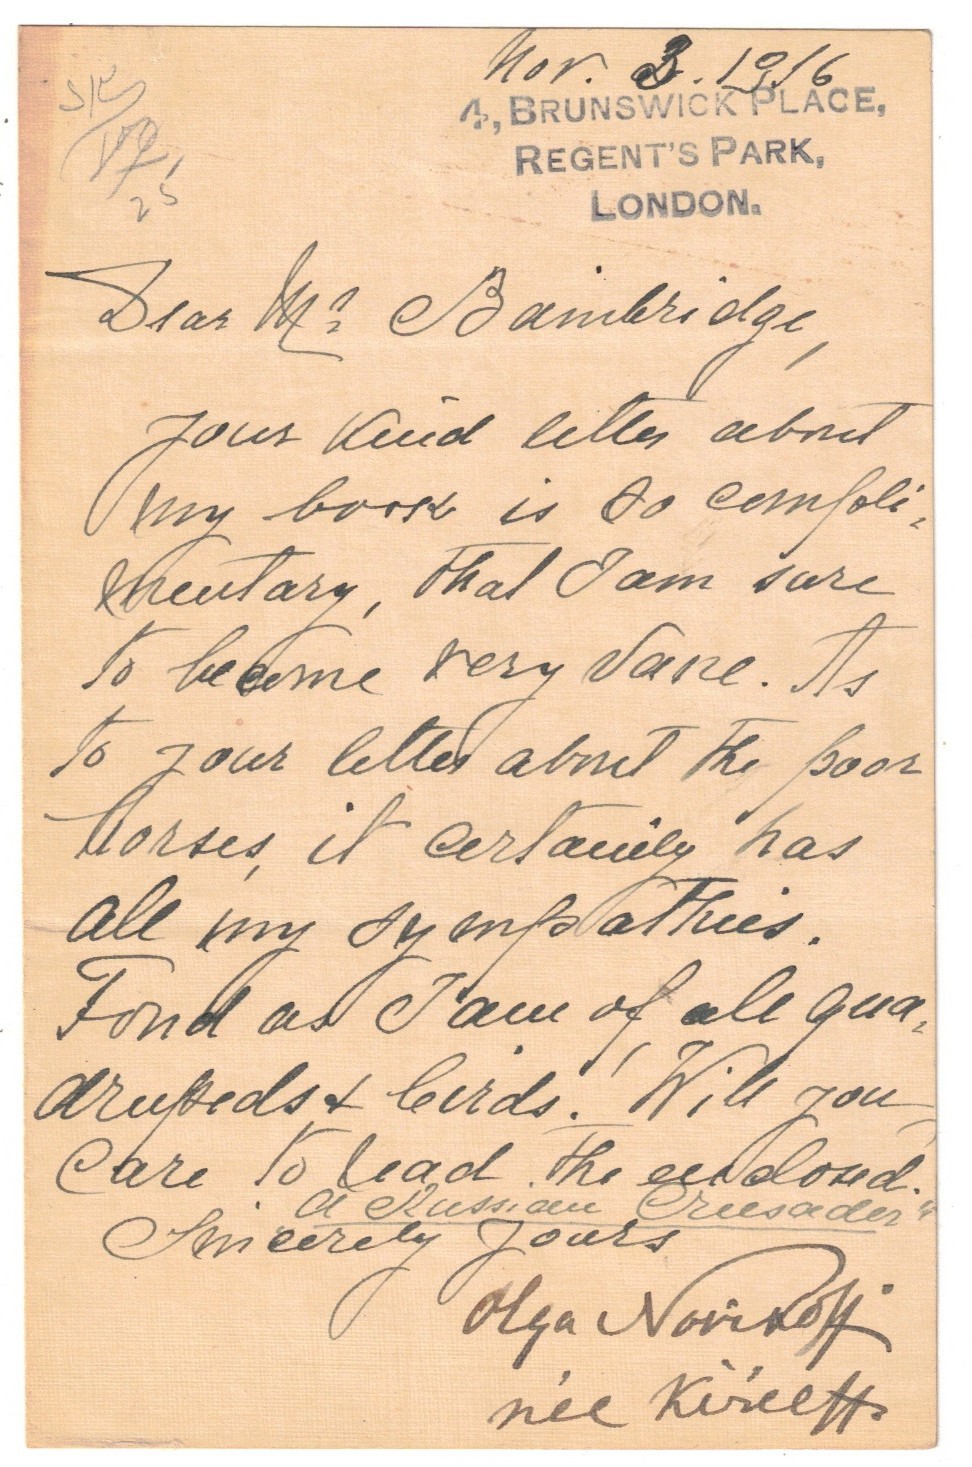 Nov. 3. 1916
4, BRUNSWICK PLACE,
REGENT'S PARK,
LONDON.
25
Dear Mr Bambridge,
your kind letter about
my book is so compli-
mentary, that I am sure
to become very vane. As
to your letter about the poor
horses, it certainly has
all my sympathies.
Fond as I am of all qua-
drupeds & birds! Will you
care to read the enclosed.
"A Russian Crusader"
Sincerely yours
Olga Novikoff
née Kiréeff